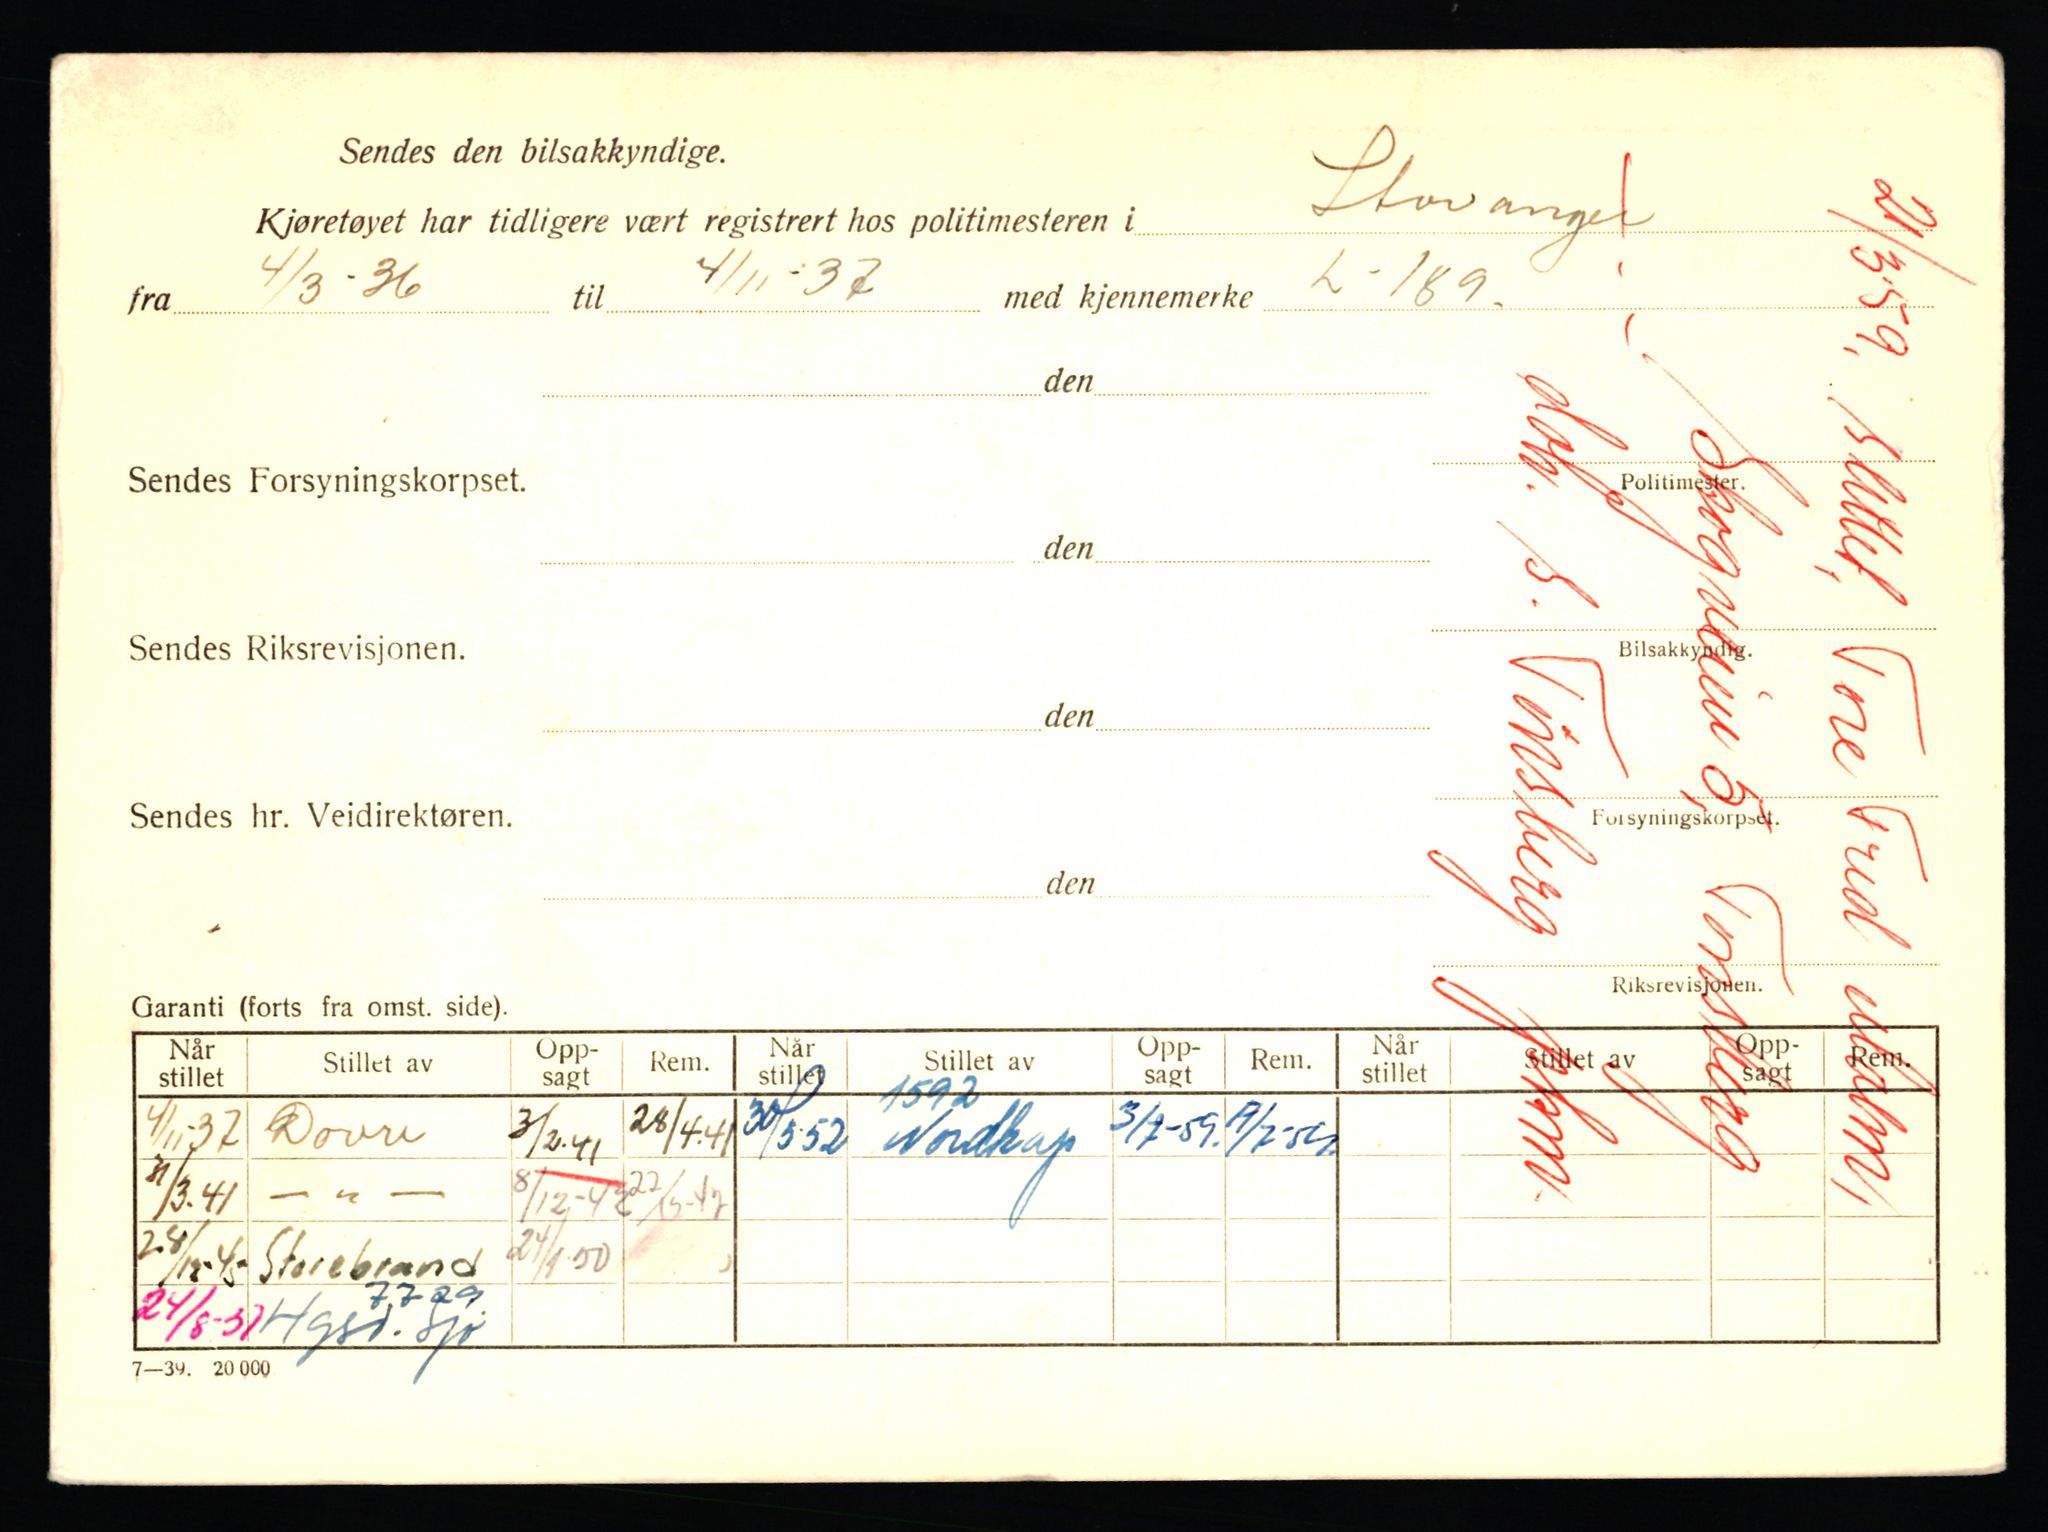 Sendes den bilsakkyndige.
Kjøretøyet har tidligere vært registrert hos politimesteren i Stavanger
fra 4/3-36 til 4/11-37 med kjennemerke L-189.
den
Politimester.
Sendes Forsyningskorpset.
den
Bilsakkyndig.
Sendes Riksrevisjonen.
den
Forsyningskorpset.
Sendes hr. Veidirektøren.
den
Riksrevisjonen.
21/3.59. Tore
5 Torsberg
dop. B. Torsberg
Garanti (forts fra omst. side).
Når stillet Stillet av Opp-sagt Rem. Når stillet Stillet av Opp-sagt Rem. Når stillet Stillet av Opp-sagt Rem.
4/11-37 Dovre 3/2.41 28/4.41 30/5.52 1592 Nordkap 3/7-59.
31/3.41 — " — 8/12-43
28/12-45 Storebrand 24/1.50
24/8-51 7729 Hgsd. Sjø
7—39. 20 000